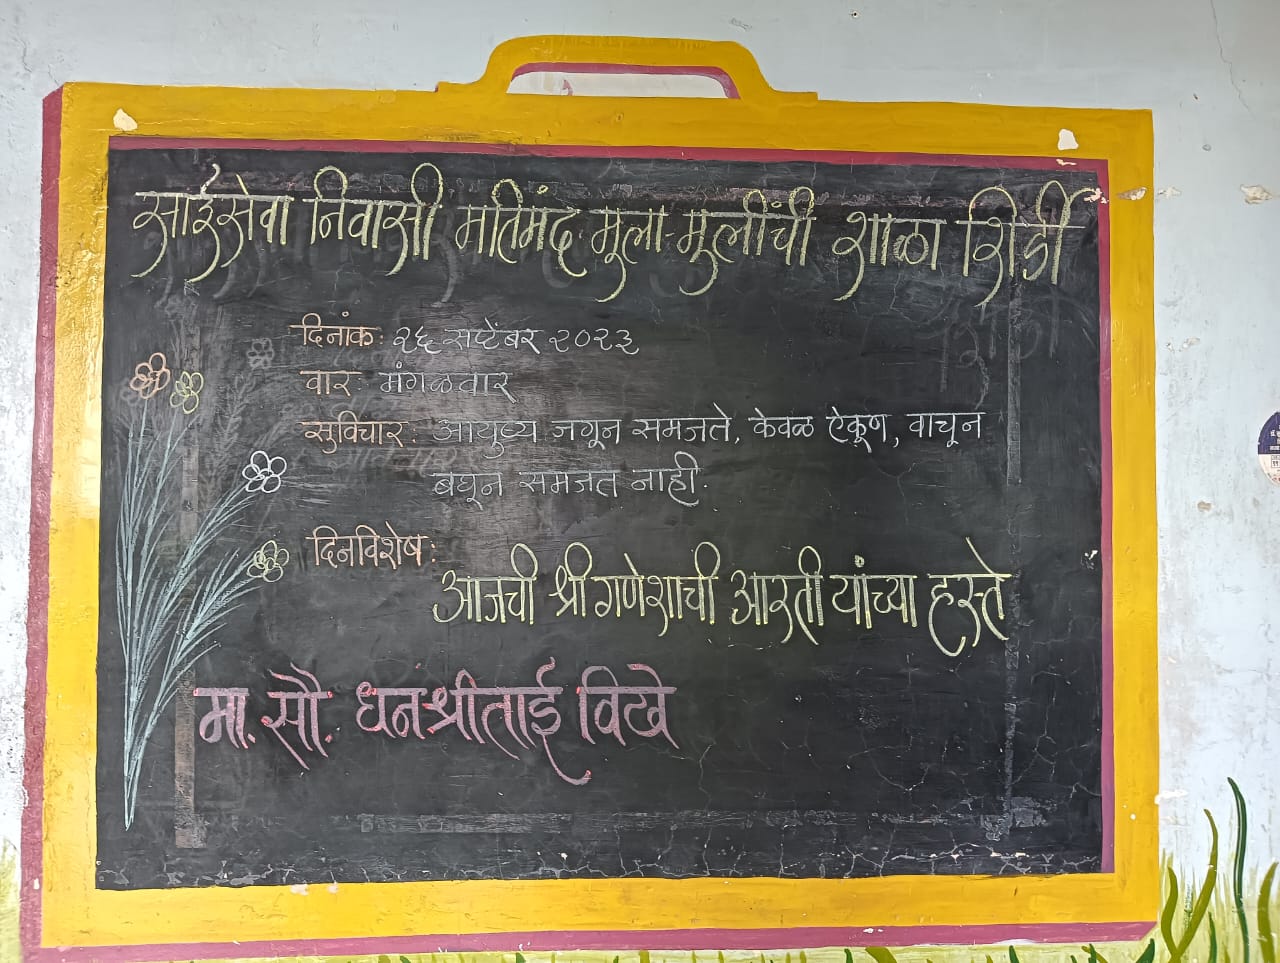 साईसेवा निवासी मतिमंद मुला मुलींची शाळा शिर्डी
दिनांक: २६ सप्टेंबर २०२३
वार: मंगळवार
सुविचार: आयुष्य जगून समजते, केवळ ऐकूण, वाचून
बघून समजत नाही.
दिनविशेष:
आजची श्री गणेशाची आरती यांच्या हस्ते
मा. सौ. धनश्रीताई विखे